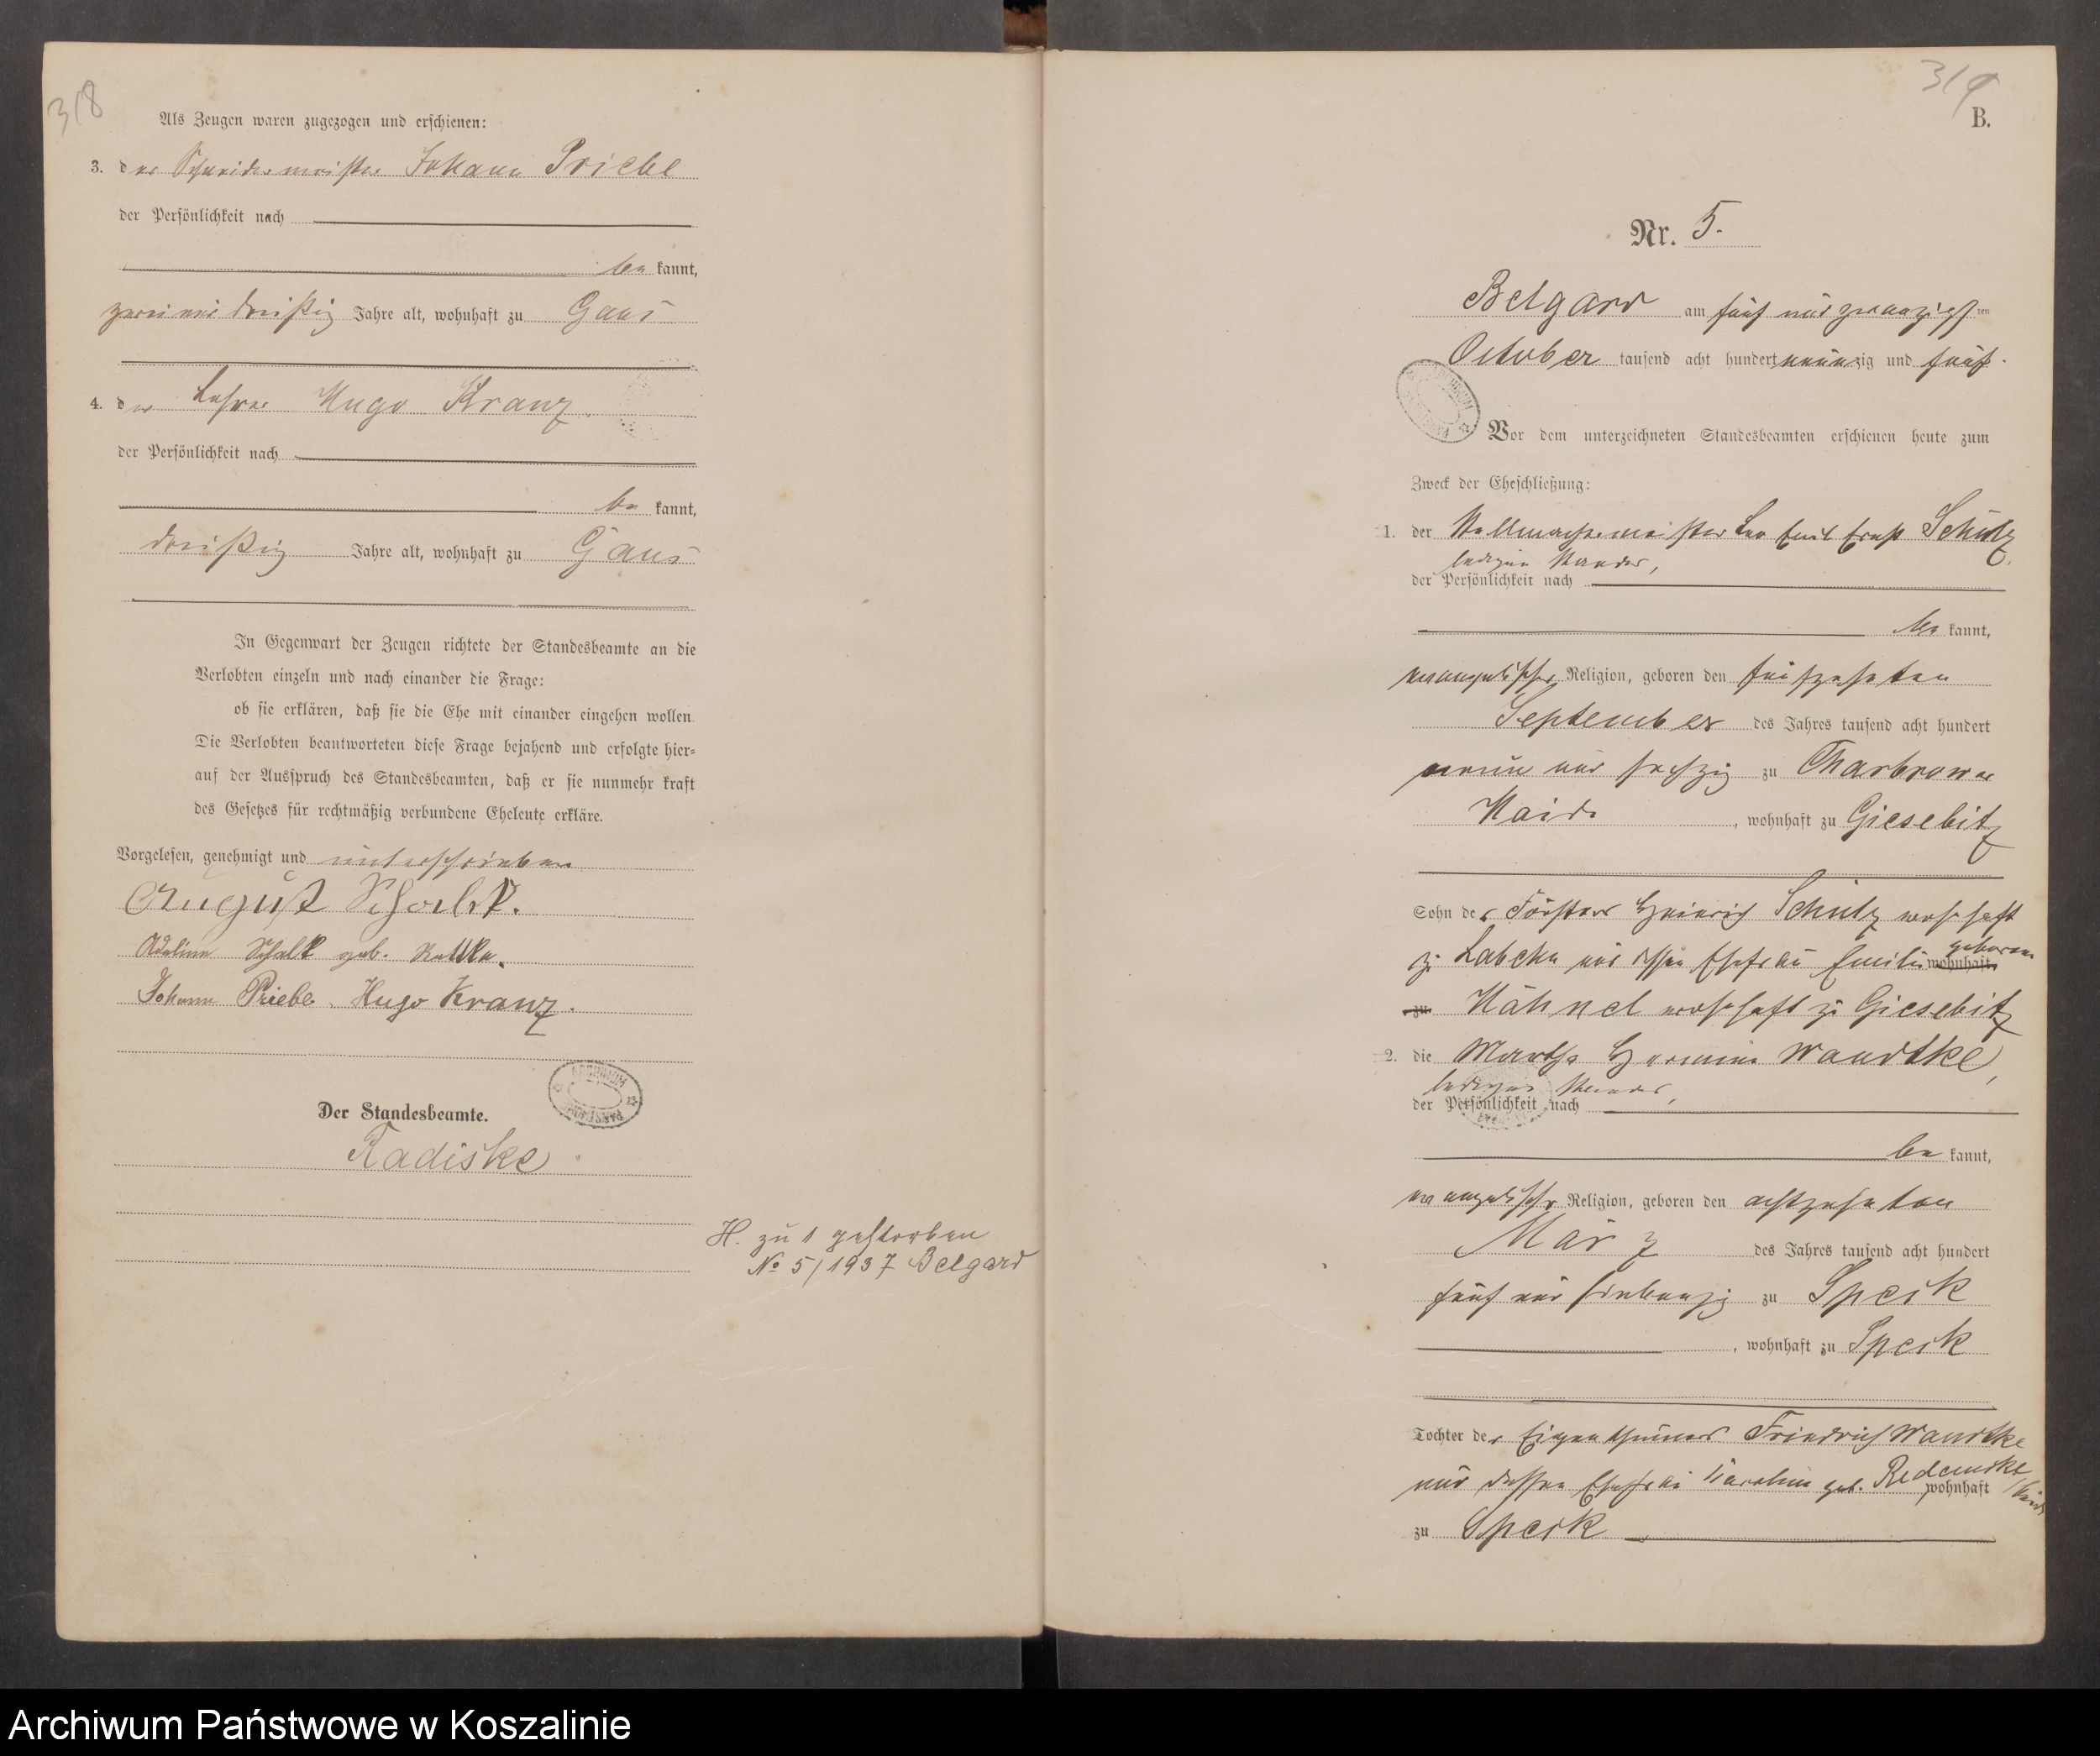 318
Als Zeugen waren zugezogen und erschienen:
3. der Schneidermeister Johann Priebe
der Persönlichkeit nach
be kannt,
zwei und dreißig Jahre alt, wohnhaft zu Gans
4. der Lehrer Hugo Kranz.
der Persönlichkeit nach
be kannt,
dreißig Jahre alt, wohnhaft zu Gans
In Gegenwart der Zeugen richtete der Standesbeamte an die
Verlobten einzeln und nach einander die Frage:
ob sie erklären, daß sie die Ehe mit einander eingehen wollen.
Die Verlobten beantworteten diese Frage bejahend und erfolgte hier-
auf der Ausspruch des Standesbeamten, daß er sie nunmehr kraft
des Gesetzes für rechtmäßig verbundene Eheleute erkläre.
Vorgelesen, genehmigt und unterschrieben
August Schalk.
Adeline Schalk geb.
Johann Priebe Hugo Kranz.
Der Standesbeamte.
Radiske
H. zu 1 gestorben
No 5/1937 Belgard
319
B.
Nr. 5.
Belgard am fünf und zwanzigsten
October tausend acht hundert neunzig und fünf.
Vor dem unterzeichneten Standesbeamten erschienen heute zum
Zweck der Eheschließung:
1. der Stellmachermeister Leo Emil Ernst Schulz
ledigen Standes,
der Persönlichkeit nach
be kannt,
evangelischer Religion, geboren den fünfzehnten
September des Jahres tausend acht hundert
neun und sechzig zu Charbrow er
Haide, wohnhaft zu Giesebitz
Sohn des Försters Heinrich Schulz wohnhaft
zu Labehn und dessen Ehefrau Emilie wohnhaft geborene
zu Hähnel wohnhaft zu Giesebitz
2. die Martha Hermine Wandtke,
ledigen Standes,
der Persönlichkeit nach
be kannt,
evangelischer Religion, geboren den achtzehnten
März des Jahres tausend acht hundert
fünf und siebenzig zu Speck
, wohnhaft zu Speck
Tochter des Eigenthümers Friedrich Wandtke
und dessen Ehefrau Karoline geb. Redemske wohnhaft
zu Speck
Archiwum Państwowe w Koszalinie